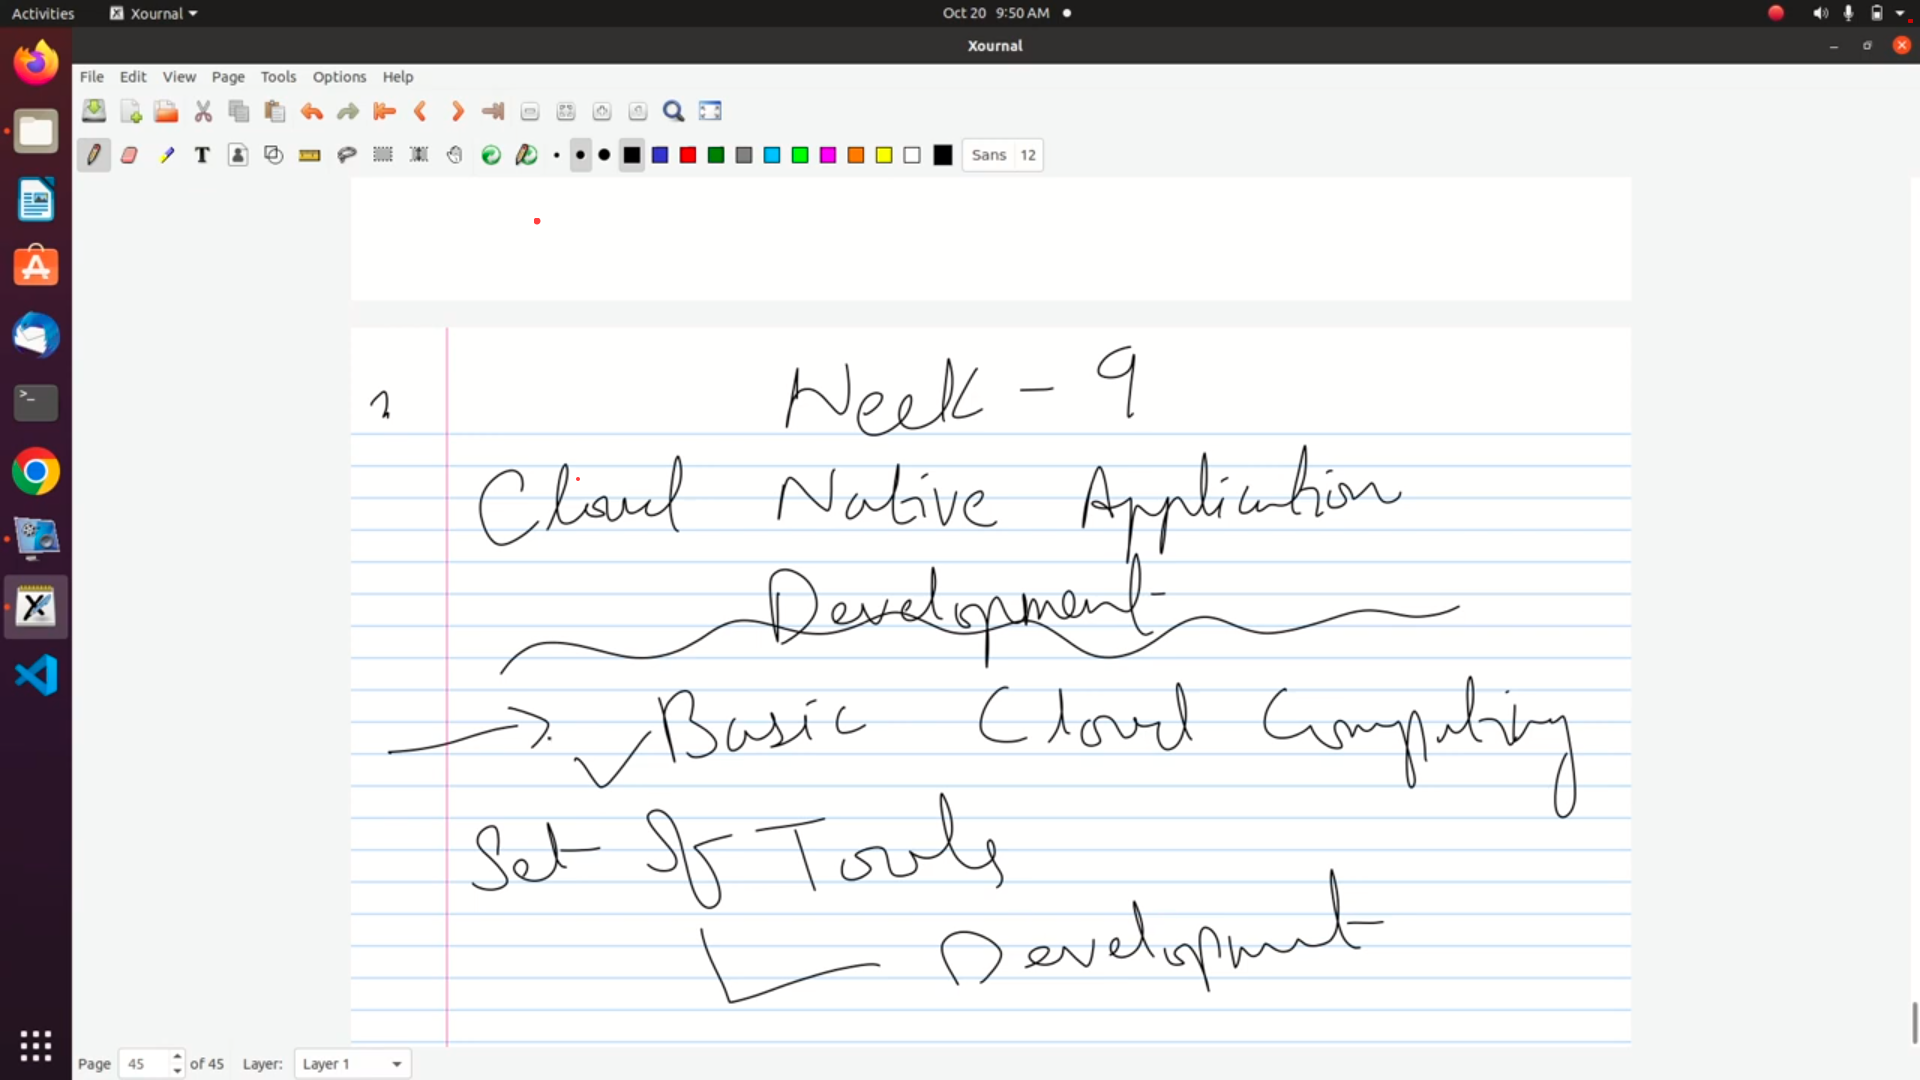 Activities Xournal Oct 20 9:50 AM
Xournal
File Edit View Page Tools Options Help
Sans 12
Week - 9
Cloud Native Application
Development
→ ✓ Basic Cloud Computing
Set of Tools
Development
Page 45 of 45 Layer: Layer 1